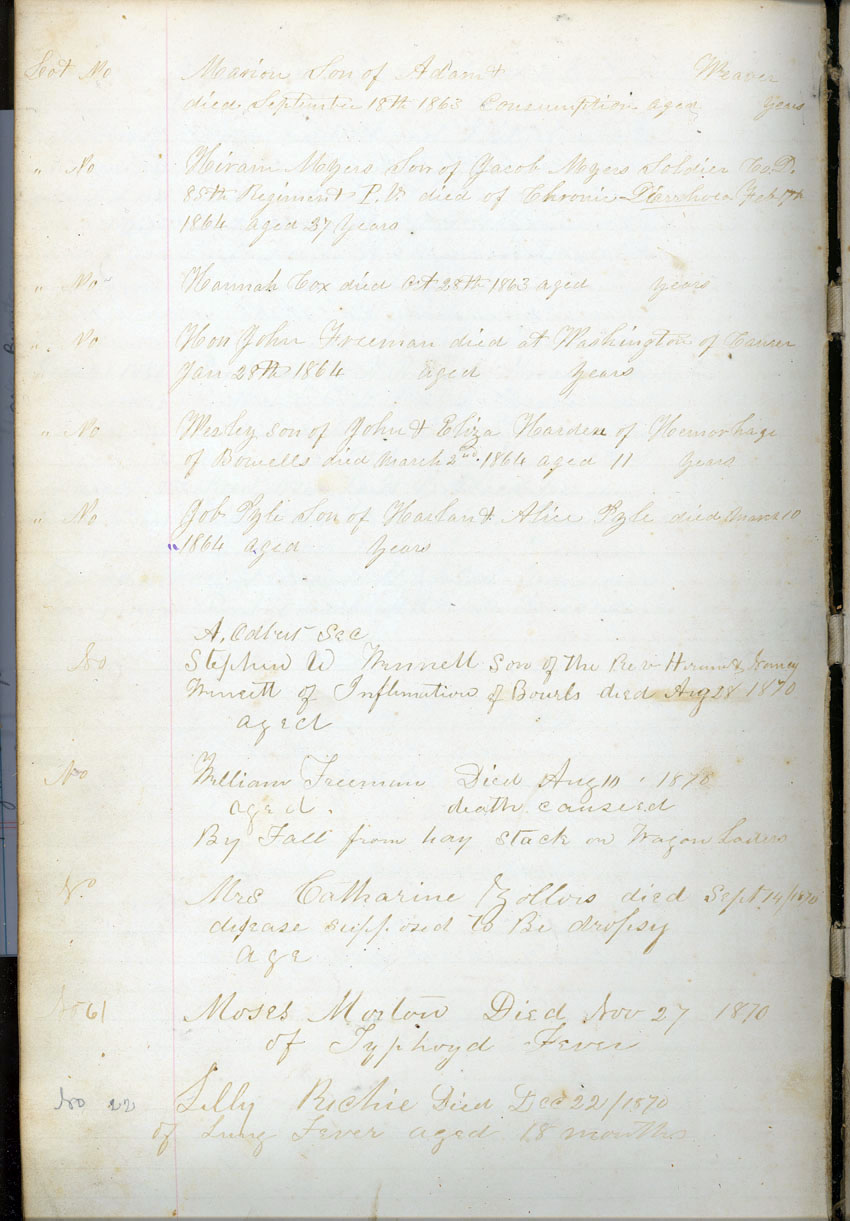 Lot No Marion, Son of Adam & Weaver
died September 18th 1863 Consumption aged years
" No Hiram Myers Son of Jacob Myers Soldier Co. D.
85th Regiment P. V. died of Chronic Diarrhoea Feb 17th
1864 aged 37 years.
" No Hannah Cox died Oct 28th 1863 aged years
" No Hon John Freeman died at Washington of Cancer
Jan 28th 1864 aged years
" No Wesley son of John & Eliza Harden of Hemorhage
of Bowells died March 2nd 1864 aged 11 years
" No Job Pyle Son of Harlan & Alice Pyle died March 10
" 1864 aged years
A. Sec
No Stephen W Winnett son of the Rev Hiram & Nancy
Winnett of Inflimation of Bowls died Aug 28 1870
aged
No William Freeman Died Aug 10 1870
aged. death caused
By Fall from hay stack on Wagon
No Mrs Catharine Zollors died Sept 14/1870
disease supposed to Be dropsy
age
No 61 Moses Morton Died Nov 27 1870
of Typhoyd Fever
No 22 Lilly Richie Died Dec 22/1870
of Lung Fever aged 18 months